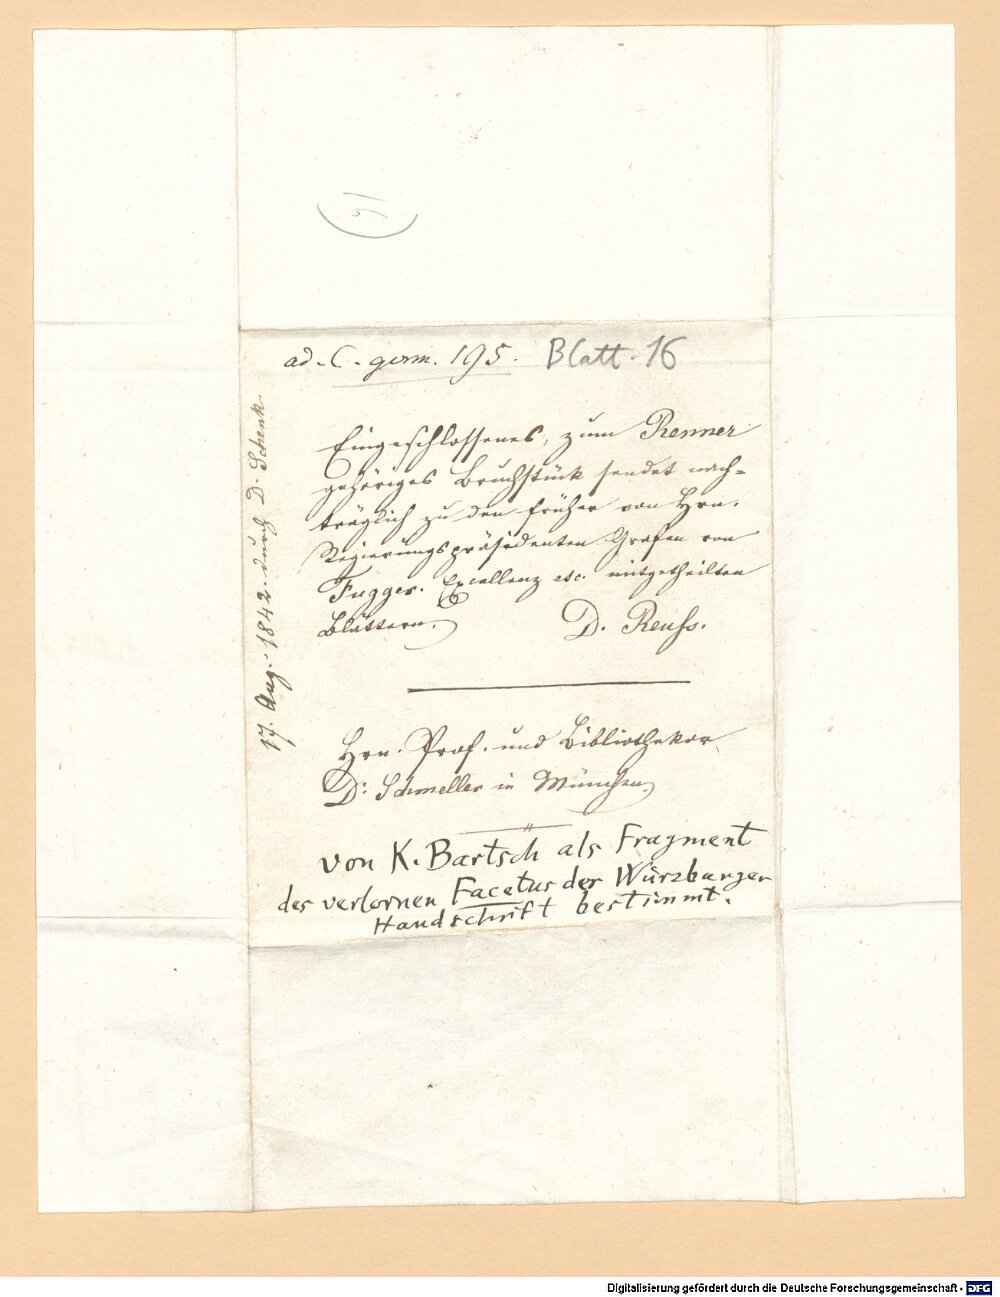 ad. C. germ. 195. Blatt. 16
Eingeschlossenes, zum Renner
gehöriges Bruchstück sendet nach-
träglich zu den früher von Hrn.
Regierungspräsidenten Grafen von
Fugger. Excellenz etc. mitgetheilten
Blättern.
D. Reuss.
17. Aug. 1842 durch D. Schenk.
Hrn. Prof. und Bibliothekar
Dr. Schmeller in München
von K. Bartsch als Fragment
des verlornen Facetus der Würzburger
Handschrift bestimmt.
Digitalisierung gefördert durch die Deutsche Forschungsgemeinschaft - DFG